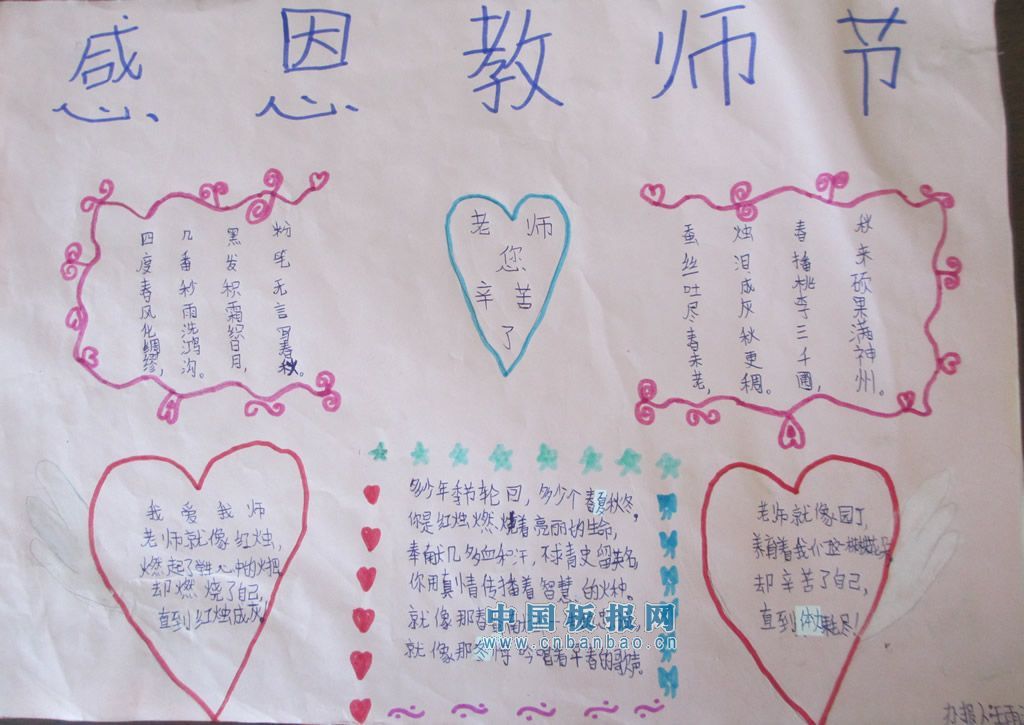 感恩教师节
粉笔无言写春秋。
黑发积霜织日月,
几番秒雨洗鸿沟。
四度春风化绸缪,
老师
您
辛苦
了
秋来硕果满神州。
春播桃李三千圃,
烛泪成灰秋更稠。
蚕丝吐尽春未老,
我爱我师
老师就像红烛,
燃起了学生心中的火把
却燃烧了自己,
直到红烛成灰!
多少年季节轮回,多少个春夏秋冬。
你是红烛燃烧着亮丽的生命,
奉献几多血和汗,不求青史留英名
你用真情传播着智慧的火种。
就像那春
就像那 吟唱着平春的歌声。
老师就像园丁,
养育着我们这
却辛苦了自己,
直到体力耗尽!
中国板报网
www.cnbanbao.cn
办报人